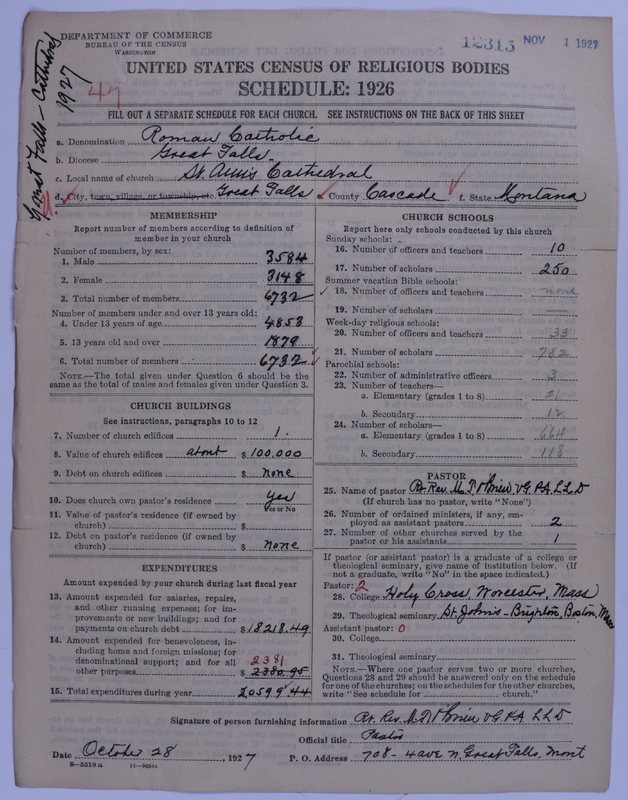 DEPARTMENT OF COMMERCE
BUREAU OF THE CENSUS
WASHINGTON
12315 NOV 1 1927
Great Falls - Cathedral
1927
47
UNITED STATES CENSUS OF RELIGIOUS BODIES
SCHEDULE: 1926
FILL OUT A SEPARATE SCHEDULE FOR EACH CHURCH. SEE INSTRUCTIONS ON THE BACK OF THIS SHEET
a. Denomination Roman Catholic
b. Diocese Great Falls
c. Local name of church St. Ann's Cathedral
d. City, town, village, or township, etc. Great Falls e. County Cascade f. State Montana
MEMBERSHIP
Report number of members according to definition of
member in your church
Number of members, by sex:
1. Male 3584
2. Female 3148
3. Total number of members 6732
Number of members under and over 13 years old:
4. Under 13 years of age 4853
5. 13 years old and over 1879
6. Total number of members 6732
NOTE.—The total given under Question 6 should be the
same as the total of males and females given under Question 3.
CHURCH BUILDINGS
See instructions, paragraphs 10 to 12
7. Number of church edifices 1.
8. Value of church edifices about $ 100,000
9. Debt on church edifices $ none
10. Does church own pastor's residence yes
Yes or No
11. Value of pastor's residence (if owned by
church) $
12. Debt on pastor's residence (if owned by
church) $ none
EXPENDITURES
Amount expended by your church during last fiscal year
13. Amount expended for salaries, repairs,
and other running expenses; for im-
provements or new buildings; and for
payments on church debt $ 18218.49
14. Amount expended for benevolences, in-
cluding home and foreign missions; for
denominational support; and for all 2381
other purposes $ 2380.95
15. Total expenditures during year 20599.44
CHURCH SCHOOLS
Report here only schools conducted by this church
Sunday schools:
16. Number of officers and teachers 10
17. Number of scholars 250
Summer vacation Bible schools:
18. Number of officers and teachers none
19. Number of scholars —
Week-day religious schools:
20. Number of officers and teachers 33
21. Number of scholars 782
Parochial schools:
22. Number of administrative officers 3
23. Number of teachers—
a. Elementary (grades 1 to 8) 21
b. Secondary 12
24. Number of scholars—
a. Elementary (grades 1 to 8) 664
b. Secondary 118
PASTOR
25. Name of pastor Rt. Rev. M. T. O'Brien VG PA LLD
(If church has no pastor, write "None")
26. Number of ordained ministers, if any, em-
ployed as assistant pastors 2
27. Number of other churches served by the
pastor or his assistants 1
If pastor (or assistant pastor) is a graduate of a college or
theological seminary, give name of institution below. (If
not a graduate, write "No" in the space indicated.)
Pastor: 2
28. College Holy Cross, Worcester, Mass
29. Theological seminary St. John's - Brighton, Boston, Mass
Assistant pastor: 0
30. College
31. Theological seminary
NOTE.—Where one pastor serves two or more churches,
Questions 28 and 29 should be answered only on the schedule
for one of the churches; on the schedules for the other churches,
write "See schedule for church."
Signature of person furnishing information Rt. Rev. M. T. O'Brien VG PA LLD
Official title Pastor
Date October 28, 1927 P. O. Address 708 - 4 ave N. Great Falls, Mont
8-3318a